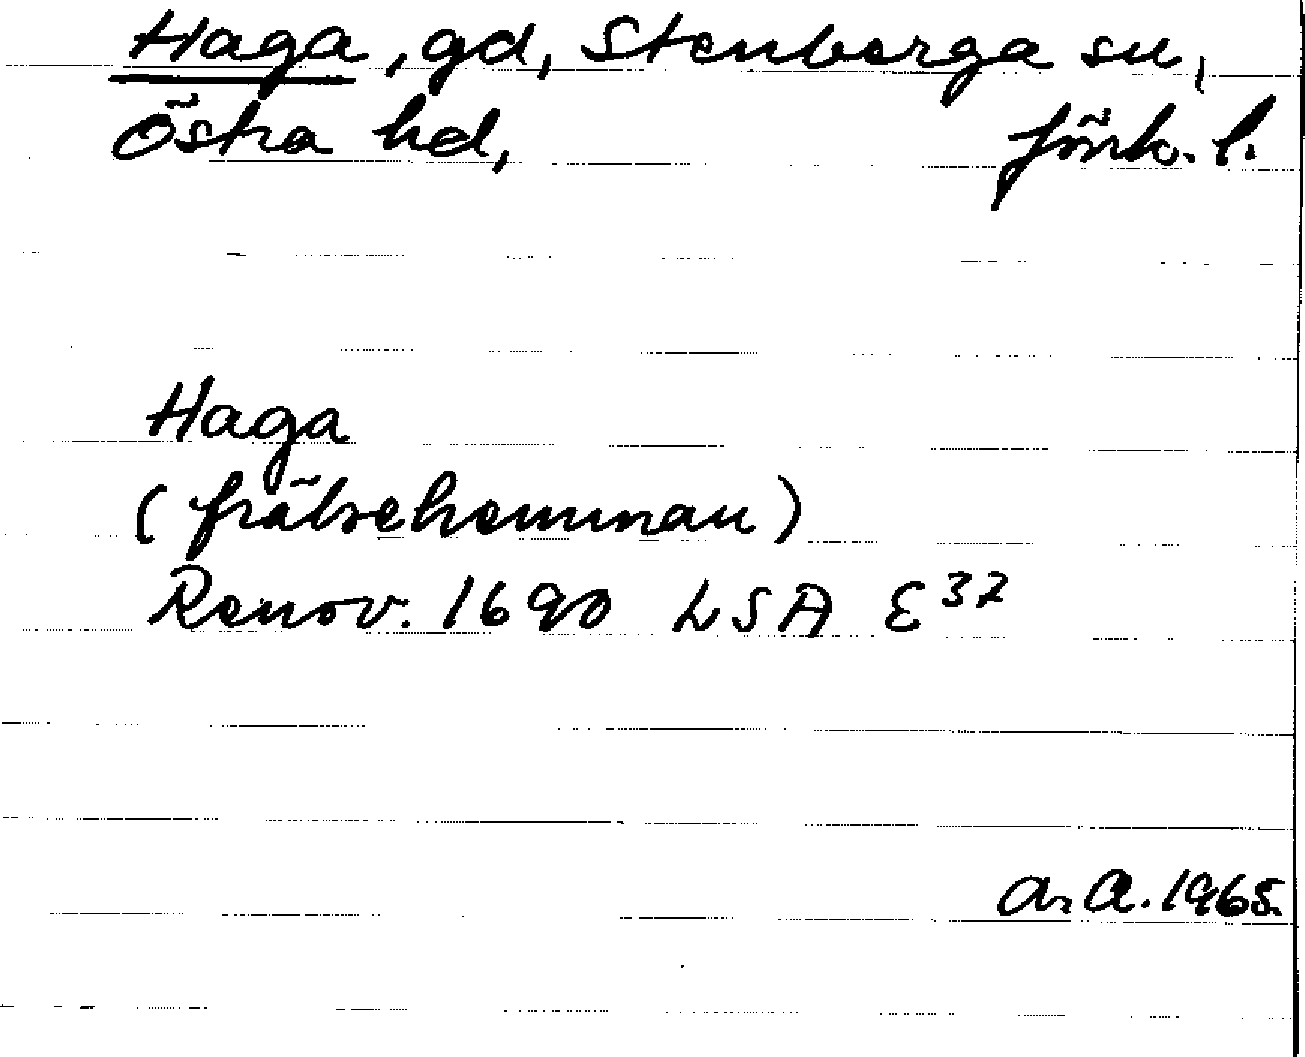 Haga, gd, Stenberga sn,
Östra hd, Jönk. l.
Haga
(frälsehemman)
Renov. 1690 LSA E³⁷
A. A. 1965.